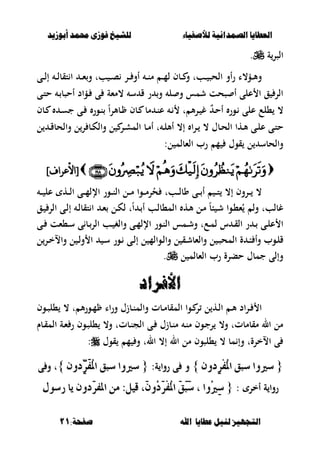 العطايا الصمدانية للأصفياء
للشيخ فوزى محمد أبوزيد
البرية ﷺ.
وهؤلاء رأو الحبيب، وكان لهم منه أوفر نصيب، وبعد انتقاله إلى
الرفيق الأعلى أصبحت شمس وصله وبدر قدسه لامعة فى فؤاد أحبابه حتى
لا يطلع على نوره أحدٌ غيرهم، لأنه عندما كان ظاهراً بنوره فى جسده كان
حتى على هذا الحال لا يراه إلا أهله، أما المشركين والكافرين والحاقدين
والحاسدين يقول فيهم رب العالمين:
﴿ وَتَرَىٰهُمْ يَنظُرُونَ إِلَيْكَ وَهُمْ لَا يُبْصِرُونَ ﴿١٩٨﴾ ﴾ [الأعراف]
لا يرون إلا يتيم أبى طالب، فحُرموا من النور الإلهى الذى عليه
غالب، ولم يُعطوا شيئاً من هذه المطالب أبداً، لكن بعد انتقاله إلى الرفيق
الأعلى بدر القدس لمع، وشمس النور الإلهى والغيب الربانى سطعت فى
قلوب وأفئدة المحبين والعاشقين والوالهين إلى نور سيد الأولين والآخرين
وإلى جمال حضرة رب العالمين ﷺ.
الأفراد
الأفراد هم الذين تركوا المقامات والمنازل وراء ظهورهم، لا يطلبون
من الله مقامات، ولا يرجون منه منازل فى الجنات، ولا يطلبون رفعة المقام
فى الآخرة، وإنما لا يطلبون من الله إلا الله، وفيهم يقول ﷺ:
{ سيروا سبق المُفْرِدون } و فى رواية: { سيروا سبق المُفَرِّدون }، وفى
رواية أخرى : { سِيْرُوا ، سَبَقَ الْمُفَرِّدُونَ، قيل: من المفرّدون يا رسول
التجهيز لنيل عطايا الله
صفحة:٢١